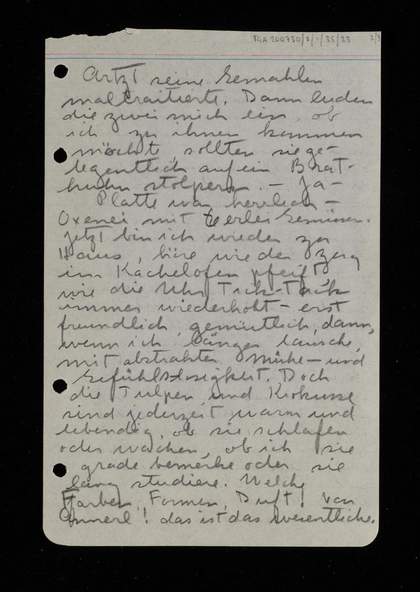 Artzt seine Gemahlin
maltraitierte. Dann luden
die zwei mich ein, ob
ich zu ihnen kommen
möchte sollten sie ge-
legentlich auf ein Brat-
huhn stolpern. — Ja —
Platte war herrlich —
mit Gemüsen.
Jetzt bin ich wieder zu
Haus, höre wie der
im Kachelofen pfeift
wie die Uhr Tick-Tack
immer wiederholt — erst
freundlich, gemütlich, dann,
wenn ich länger lausche,
mit abstrakter Mühe — und
Gefühlslosigkeit. Doch
die Tulpen und Krokusse
sind jederzeit warm und
lebendig, ob sie schlafen
oder wachen, ob ich sie
grade bemerke oder sie
lang studiere. Welche
Farben, Formen, Duft! Von
! das ist das wesentliche.